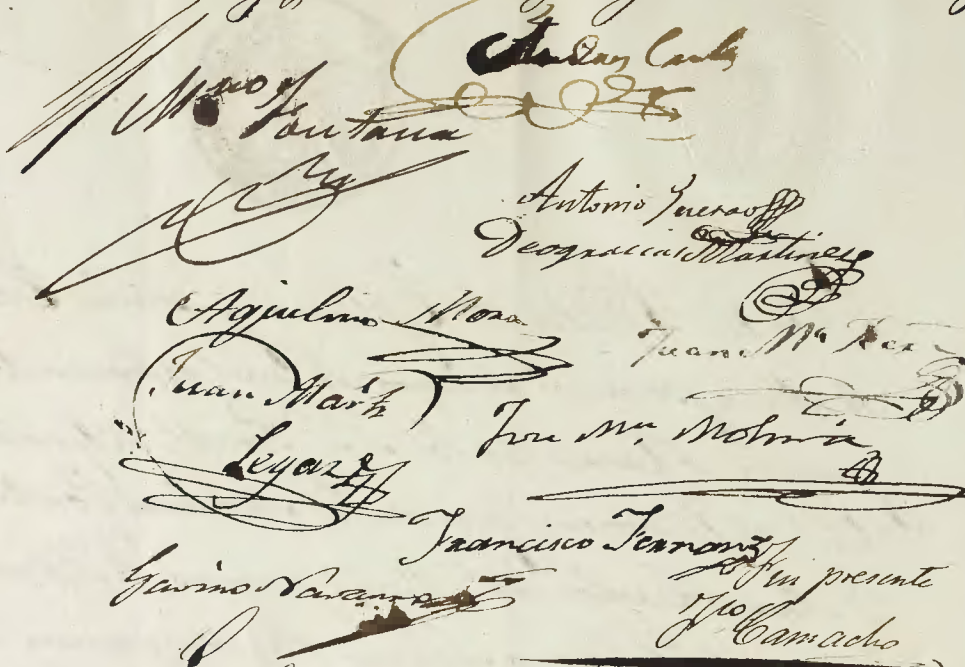 Fontana
Antonio Guerao
Deogracias Martinez
Aquilino Mora
Juan Mª
Juan Martz
Legaz
Jose Mª Molina
Francisco Fernanz
Gavino Navarro
Fui presente
Camacho